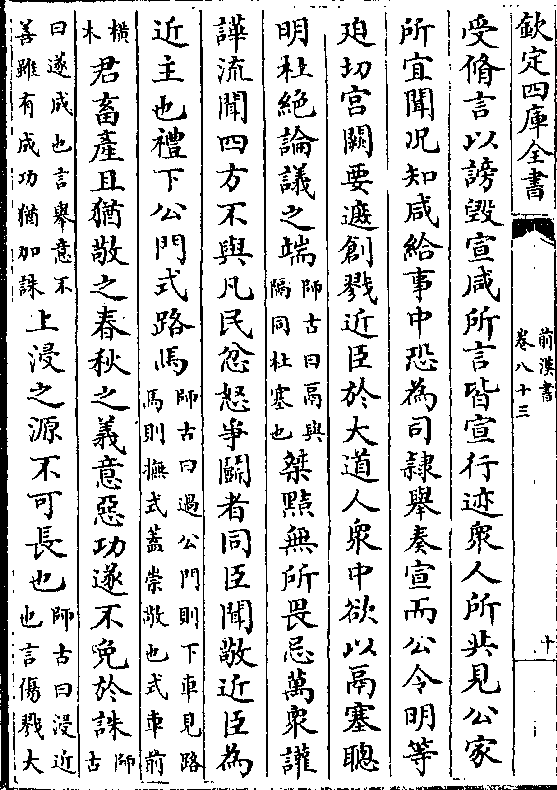 欽定四庫全書
前漢書
卷八十三
十
受脩言以謗毀宣咸所言皆宣行迹衆人所共見公家
所宜聞况知咸給事中恐為司隸舉奏宣而公令明等
廹切宫闕要遮創戮近臣於大道人衆中欲以鬲塞聰
明杜絶論議之端師古曰鬲與隔同杜塞也桀黠無所畏忌萬衆讙
譁流聞四方不與凡民忿怒爭鬬者同臣聞敬近臣為
近主也禮下公門式路馬師古曰過公門則下車見路馬則撫式蓋崇敬也式車前
横木君畜產且猶敬之春秋之義意惡功遂不免於誅師古
曰遂成也言舉意不善雖有成功猶加誅上浸之源不可長也師古曰浸近也言傷戮大